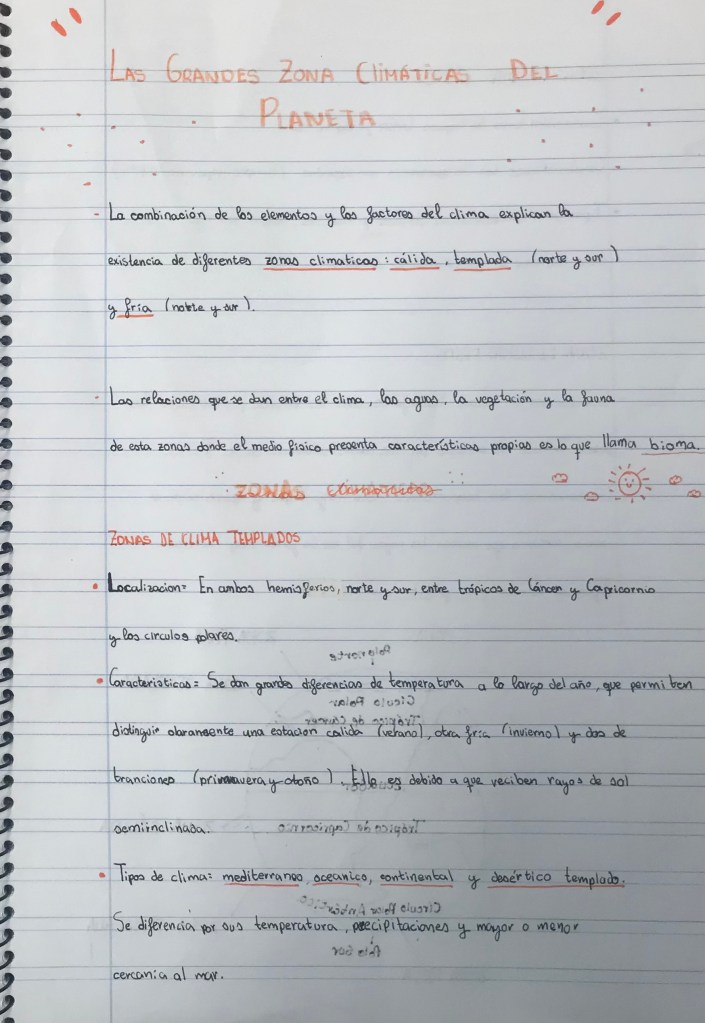 LAS GRANDES ZONA CLIMÁTICAS DEL
PLANETA
- La combinación de los elementos y los factores del clima explican la
existencia de diferentes zonas climaticas: cálida, templada (norte y sur)
y fría (norte y sur).
- Las relaciones que se dan entre el clima, las aguas, la vegetación y la fauna
de esta zonas donde el medio físico presenta características propias es lo que llama bioma.
ZONAS
ZONAS DE CLIMA TEMPLADOS
• Localizacion= En ambos hemisferios, norte y sur, entre trópicos de Cáncer y Capricornio
y los circulos polares.
• Caracteristicas= Se dan grandes diferencias de temperatura a lo largo del año, que permiten
distinguir claramente una estacion calida (verano), otra fría (invierno) y dos de
tranciones (primavera y otoño). Ello es debido a que reciben rayos de sol
semiinclinada.
• Tipos de clima= mediterraneo, oceanico, continental y desértico templado.
Se diferencia por sus temperatura, precipitaciones y mayor o menor
cercania al mar.